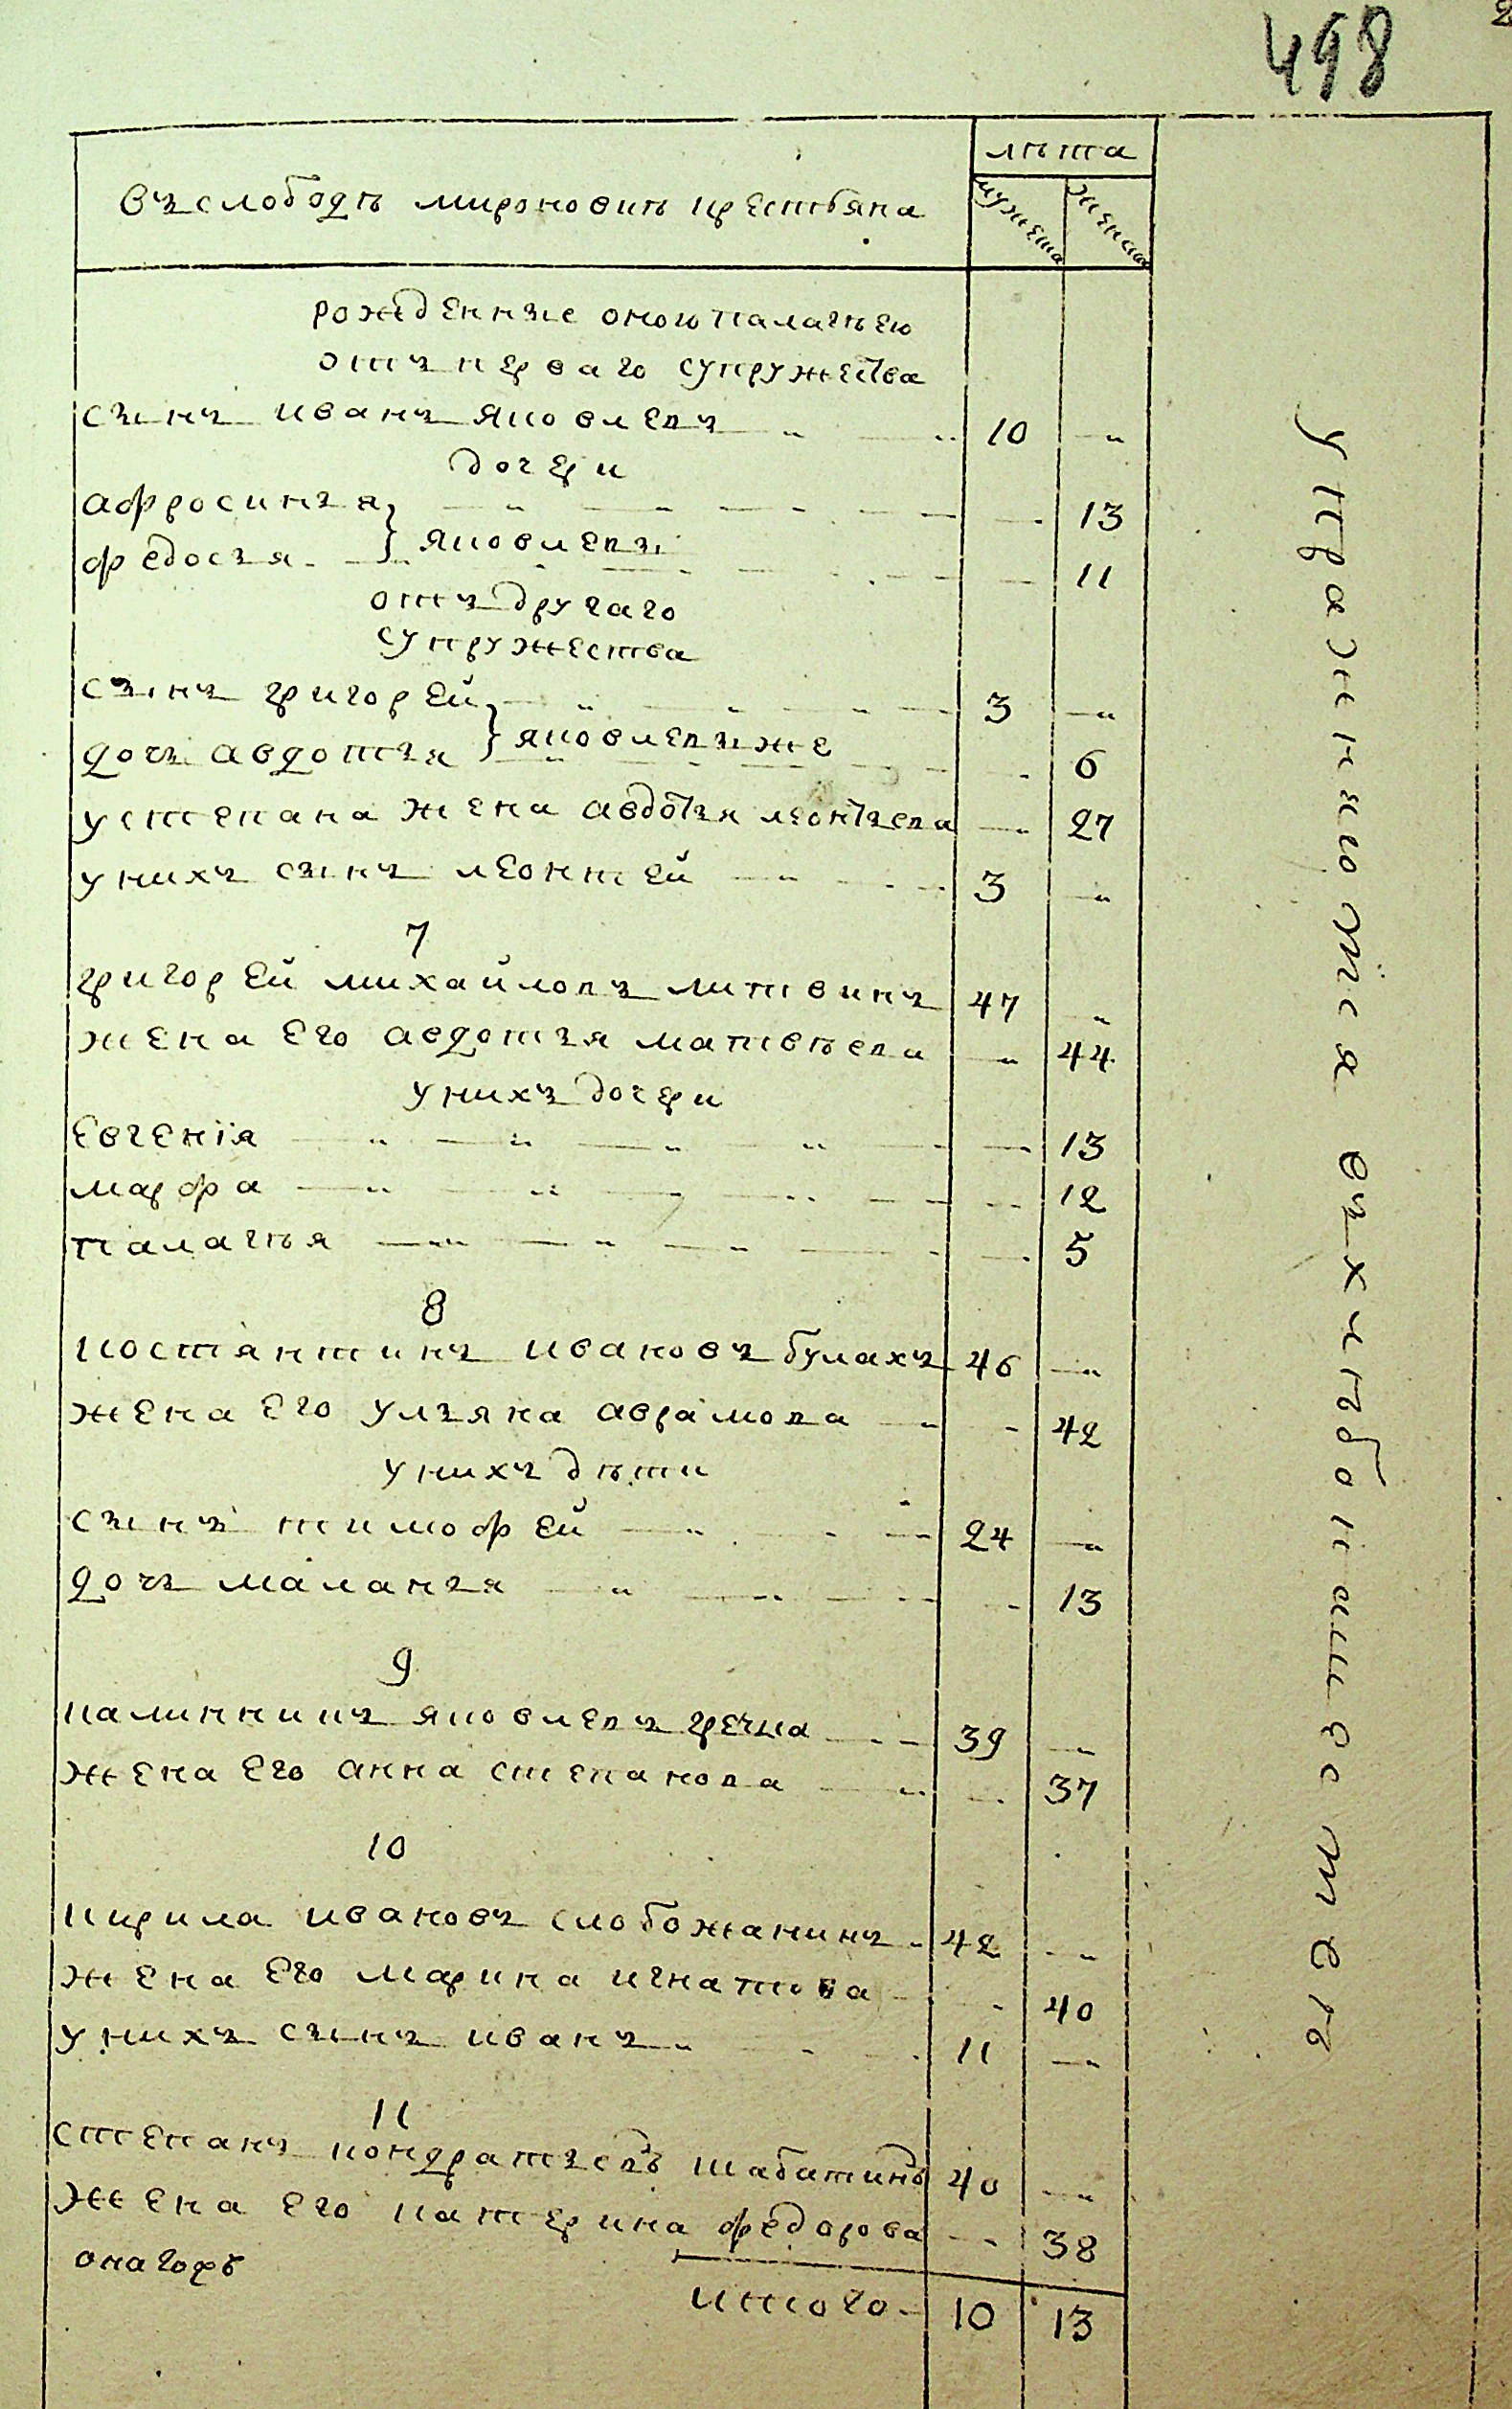 498
лѣта
въ слободѣ мироновкѣ крестьяна
мужеска
женска
рожденные оною палагѣею
отъ перваго супружества
сынъ иванъ яковлевъ 10
дочери
афросинья 13
яковлевы
федосья 11
отъ другаго
супружества
сынъ григорей 3
яковлевы же
дочь авдотья 6
у степана жена авдотья леонтьева 27
у нихъ сынъ леонтей 3
7
григорей михайловъ литвинъ 47
жена его авдотья матвѣева 44
у нихъ дочери
евгенїя 13
марфа 12
палагѣя 5
8
костянтинъ ивановъ булахъ 46
жена его ульяна аврамова 42
у нихъ дѣти
сынъ тимофей 24
дочь маланья 13
9
калинникъ яковлевъ гречка 39
жена его анна степанова 37
10
кирила ивановъ слобожанинъ 42
жена его марина игнатова 40
у нихъ сынъ иванъ 11
11
степанъ кондратьевъ шабатинъ 40
жена его катерина федорова 38
итого 10 13